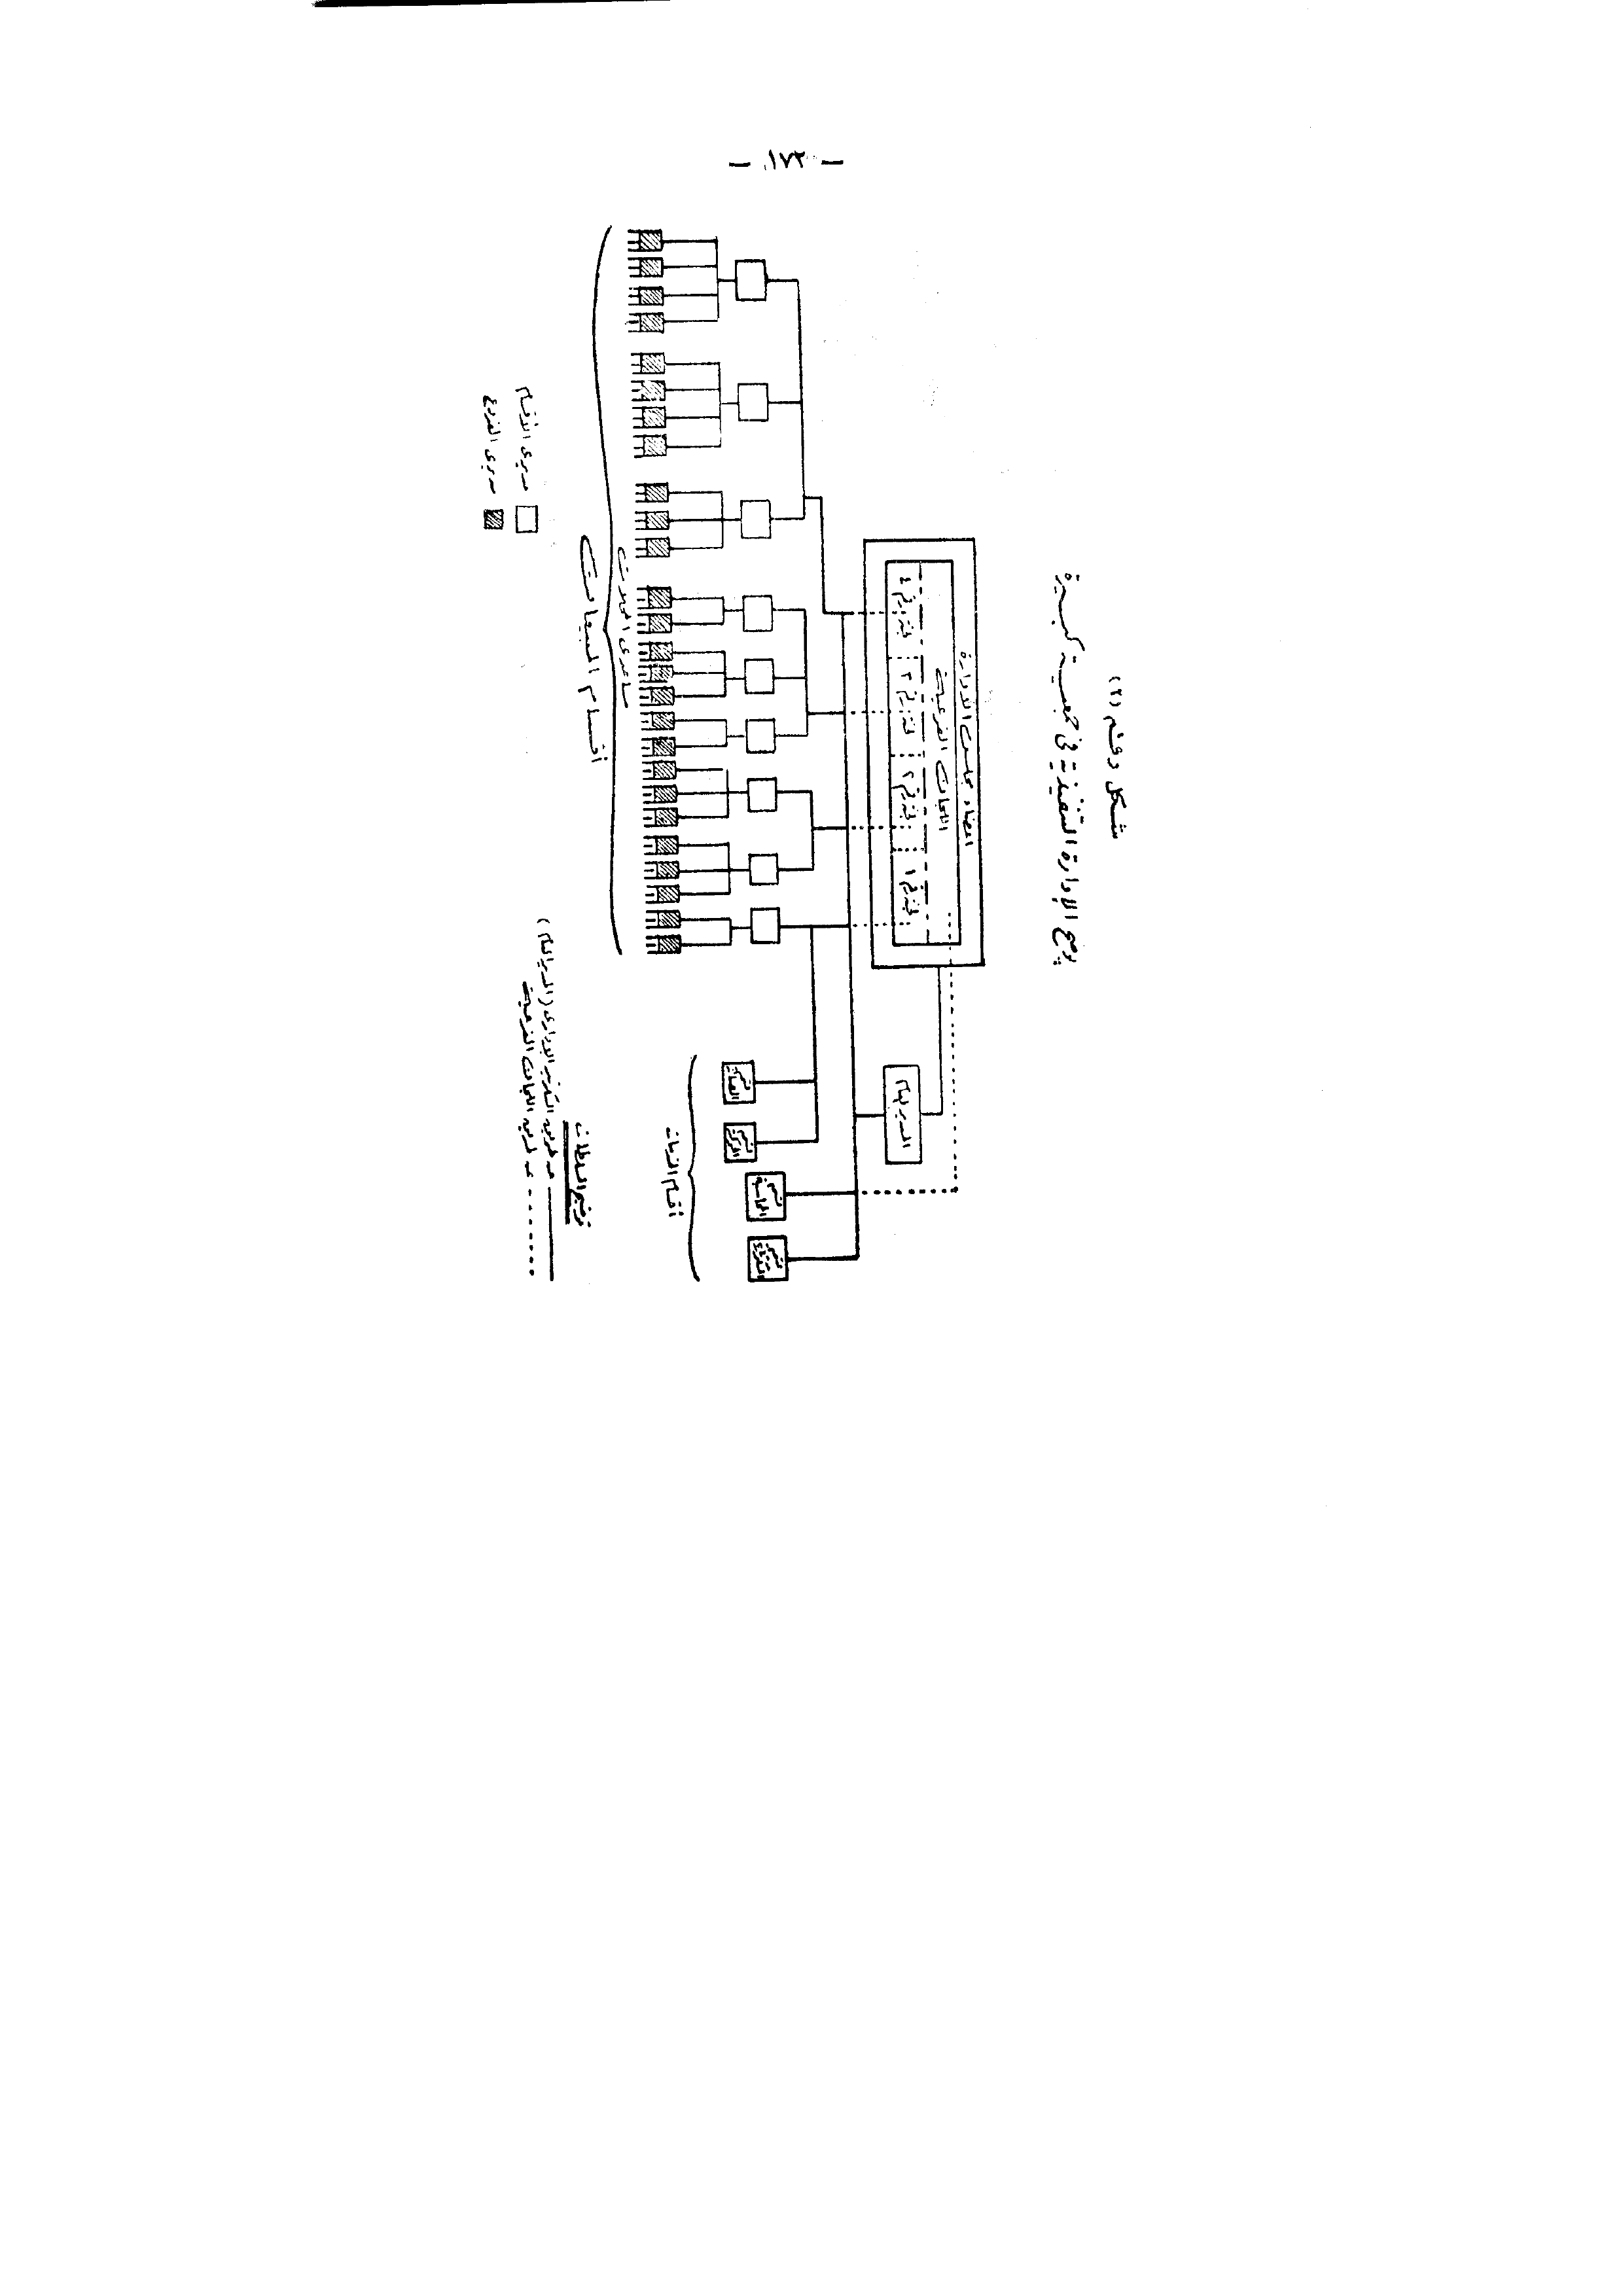 - ١٧٢ -
شكل رقم (٢)
يوضح الإدارة التنفيذية في جمعية كبيرة
أعضاء مجلس الادارة
اللجان الفرعية
لجنة رقم ١
لجنة رقم ٢
لجنة رقم ٣
لجنة رقم ٤
المدير العام
قسم
قسم
قسم
قسم
أقسام الخدمات
مساعدى المحلات
أقسام المبيعات
مديرى الأقسام
مديرى الفروع
توضيح السلطات
عن طريق السكرتير الادارى (المدير العام)
عن طريق اللجان الفرعية